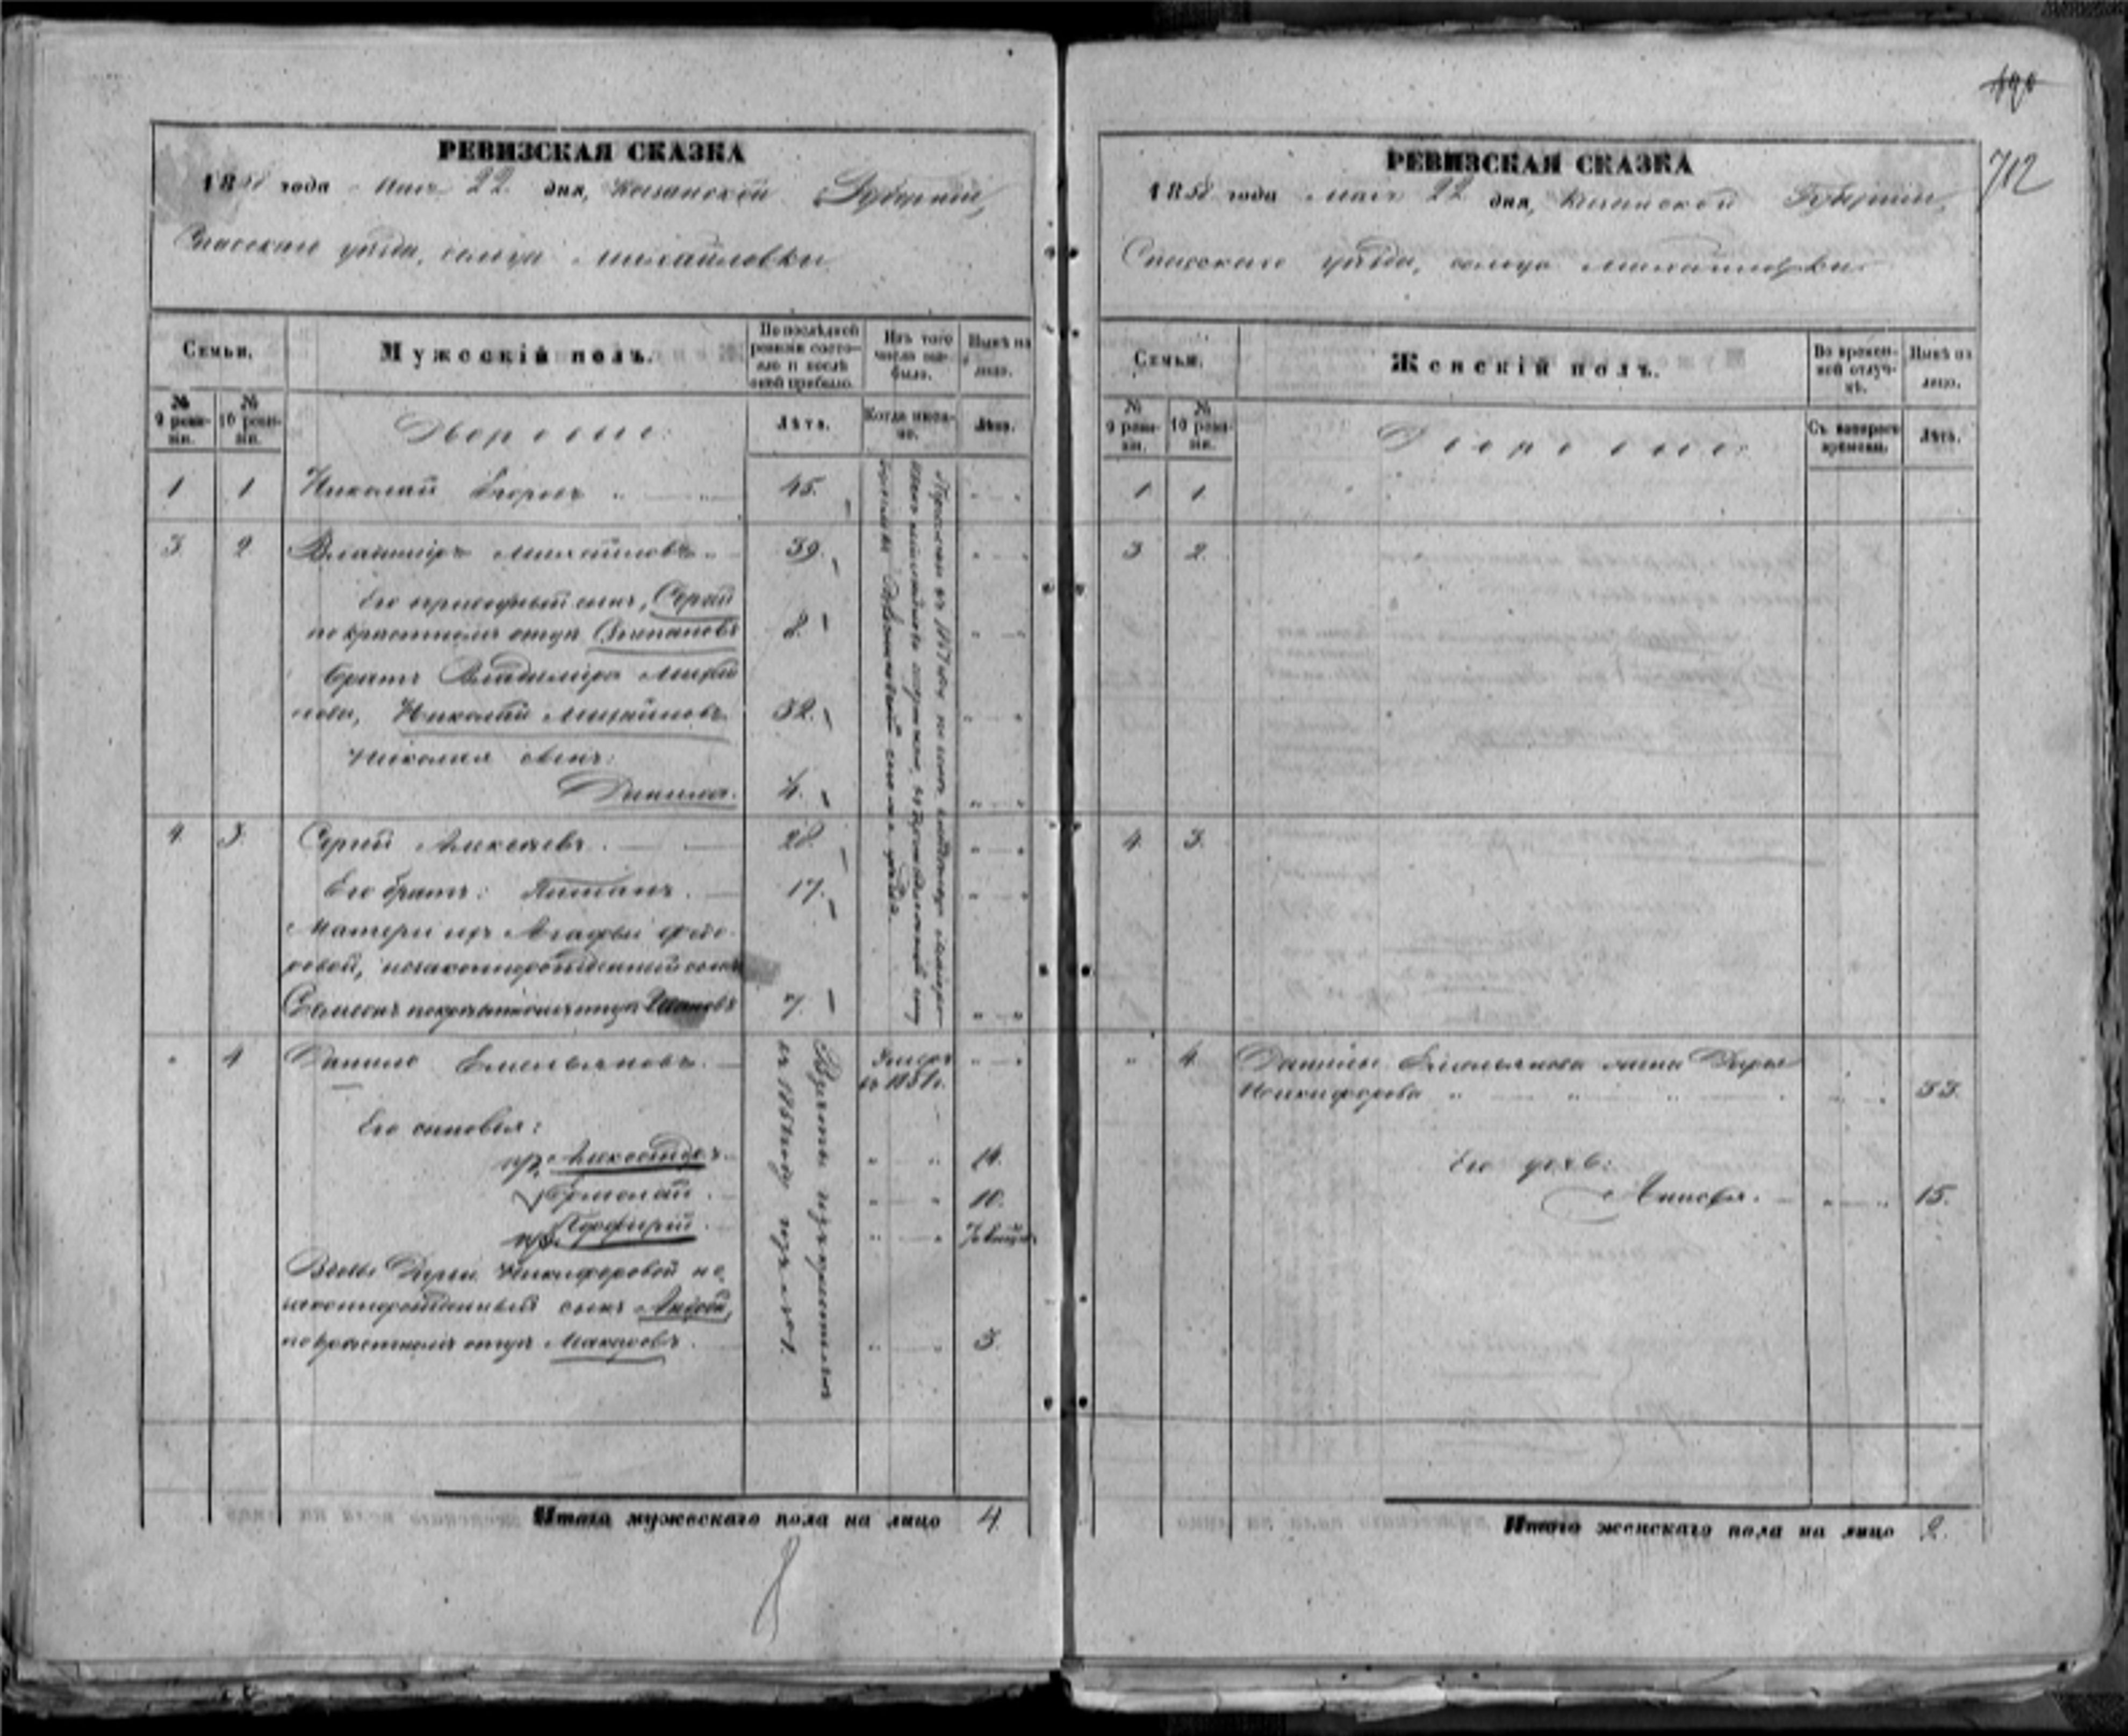 190
712
РЕВИЗСКАЯ СКАЗКА
1858 года мая 22 дня, Казанской Губернии,
Спасскаго уѣзда, сельца Михайловки
Семьи.
Мужескій полъ.
По послѣдней ревизіи состояло и послѣ оной прибыло.
Изъ того числа выбыло.
Нынѣ на лицо.
№ 9 ревизіи.
№ 10 ревизіи.
Дворовые:
Лѣта.
Когда именно.
Лѣта.
1 1 Николай Егоровъ 45.
3. 2 Владиміръ Михайловъ 39.
Его приводный сынъ, Сергѣй
по крестному отцу Степановъ 8.
Братъ Владиміра Михай
лова, Николай Михайловъ 32.
Николая сынъ:
Данила. 4.
4. 3. Сергѣй Алексѣевъ 28.
Его братъ: 17.
Матери ихъ Агафьи Федо-
ровой, незаконнорожденный сынъ
по крестному отцу Ивановъ 7.
4 Данило Емельяновъ. Умеръ въ 1851 г.
Его сыновья:
пр. Александръ. 14.
Ермолай. 10.
пр. Порфирій.
Вдовы Дарьи Никифоровой не
законнорожденный сынъ Андрей,
по крестному отцу Макаровъ. 3.
Итого мужескаго пола на лицо 4
РЕВИЗСКАЯ СКАЗКА
1858 года мая 22 дня, Казанской Губерніи,
Спасскаго уѣзда, сельца Михайловки
Семьи.
Женскій полъ.
Во временной отлучкѣ.
Нынѣ на лицо.
№ 9 ревизіи.
№ 10 ревизіи.
Дворовые:
Съ котораго времени.
Лѣта.
1 1.
3 2.
4. 3.
4. Данилы Емельянова жена Дарья
Никифорова 33.
Его дочь:
Анисья. 15.
Итого женскаго пола на лицо 2.